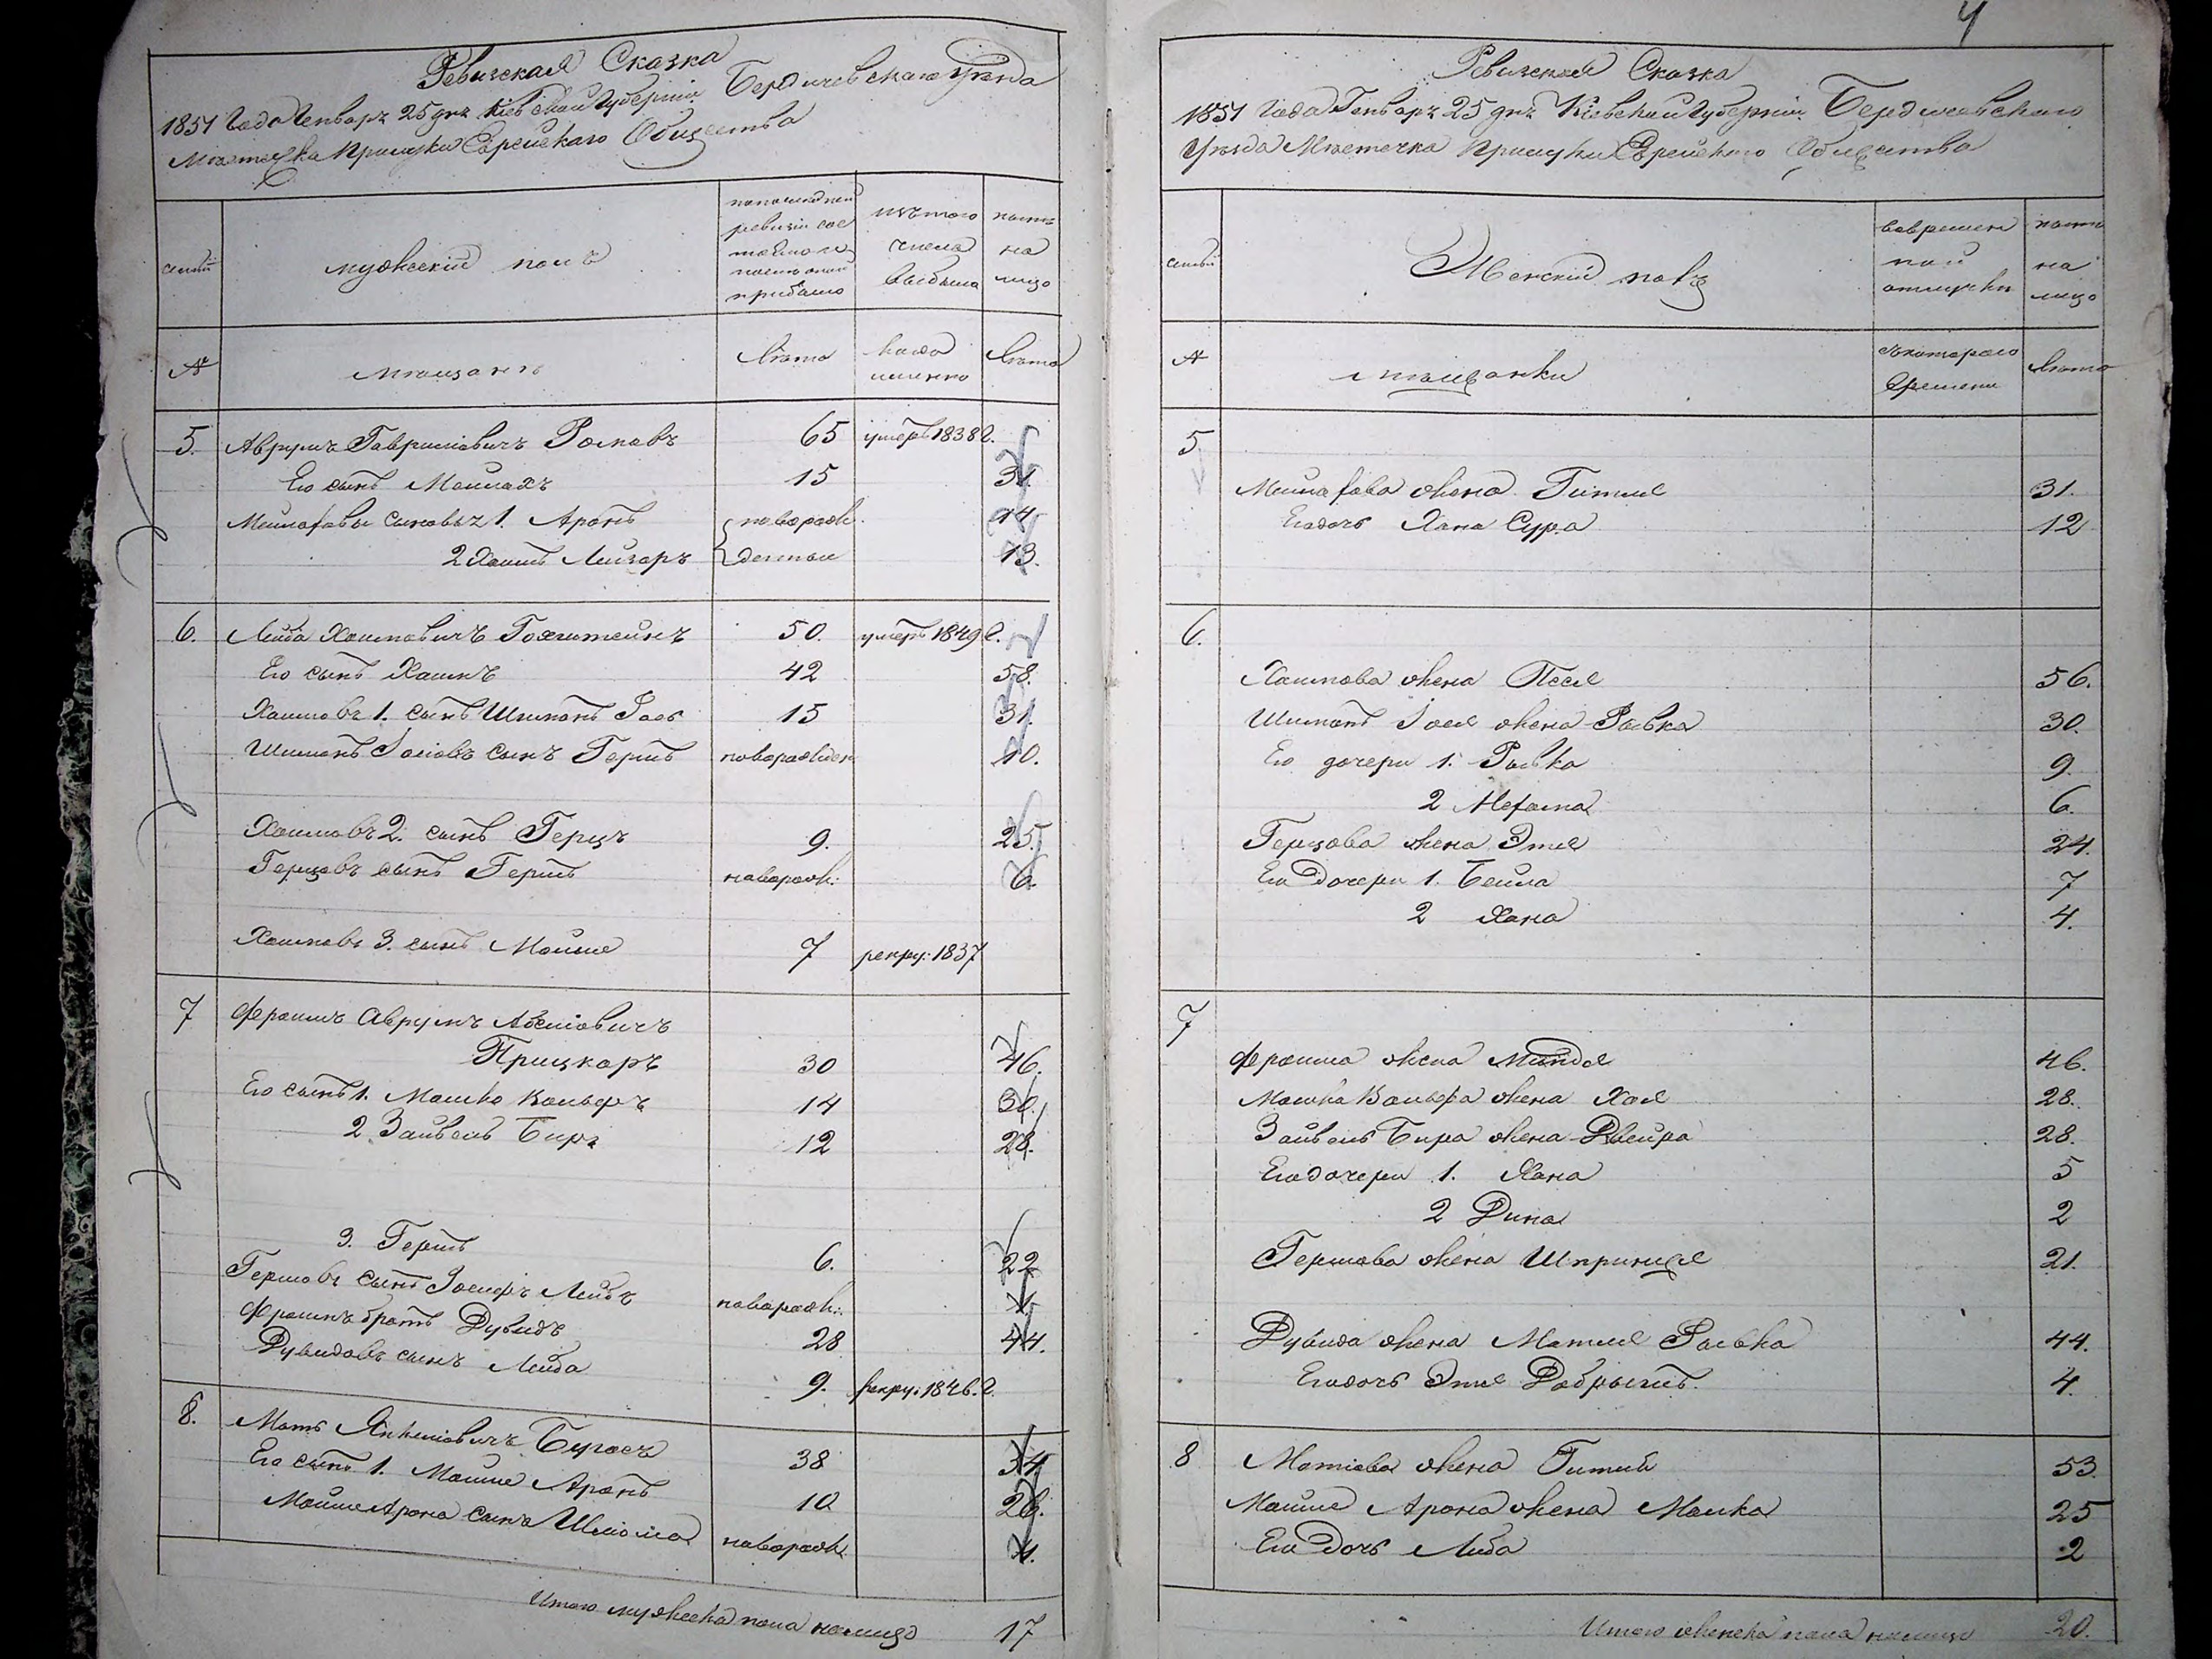 4
Ревизская Сказка
1851 Года Генваря 25 дня Кіевской Губерніи Бердичевскаго Уѣзда
Мѣстечка Прилуки Еврейскаго Общества
семьи
мужескій полъ
по последней
ревизіи сос
тояло и
после оной
прибыло
изъ того
числа
выбыло
ныне
на
лицо
№
мѣщанъ
Лѣта
когда
именно
Лѣта
5. Аврумъ Гавриловичъ 65 умеръ 1838 г.
Его сынъ Мейлахъ 15 31.
Мейлаховы сыновья 1. Аронъ новорож. 14
2 Хаимъ Лейзоръ денныи 13.
6. Лейба Хаимовичъ 50. умеръ 1849 г.
Его сынъ Хаимъ 42 58.
Хаимовъ 1. сынъ Шимонъ Іось 15 31.
Шимонъ сынъ Гершъ новорожден 10.
Хаимовъ 2. сынъ Герцъ 9. 25.
Герцовъ сынъ Гершъ новорож: 6.
Хаимовъ 3. сынъ Мойше 7 рекру: 1837
7 Фроимъ Аврумъ Абелiовичъ
Прицкаръ 30 46.
Его сынъ 1. Мошко Вольфъ 14 30.
2. Зайвель Беръ 12 28.
3. Гершъ 6. 22
Гершовъ сынъ Іосифъ Лейбъ новорож: 1.
Фроимъ братъ Дувидъ 28 44.
Дувидовъ сынъ Лейба 9. рекру: 1846. г.
8. Моть Янкелiовичъ 38 54
Его сынъ 1. Мойше Аронъ 10 26.
Мойше Арона сынъ Шлiома новорож. 4.
Итого мужеска пола налицо 17
Ревизская Сказка
1851 Года Генваря 25 дня Кіевской Губерніи Бердичевскаго
Уѣзда Мѣстечка Прилуки Еврейскаго Общества
семьи
Женскій полъ
во времен
ной
отлучки
ныне
на
лицо
№
мѣщанки
съ котораго
времени
Лѣта
5
Мейлахова жена Гитля 31.
Его дочь Хана Сура 12
6.
Хаимова жена Песя 56.
Шимонъ жена Ривка 30.
Его дочери 1. 9.
2 Нехама 6.
Герцова жена Этя 24.
Его дочери 1. Бейла 7
2 Хана 4.
7
Фроима жена Миндя 46.
Мошка Вольфа жена Хая 28.
Зайвель Бера жена Двейра 28.
Его дочери 1. Хана 5
2 Дина 2
Гершова жена Шпринця 21.
Дувида жена Матля Ривка 44.
Его дочь Этя Добрысь. 4.
8 Мотiова жена Гитля 53.
Мойше Арона жена Малка 25
Его дочь Либа 2
Итого женска пола налицо 20.